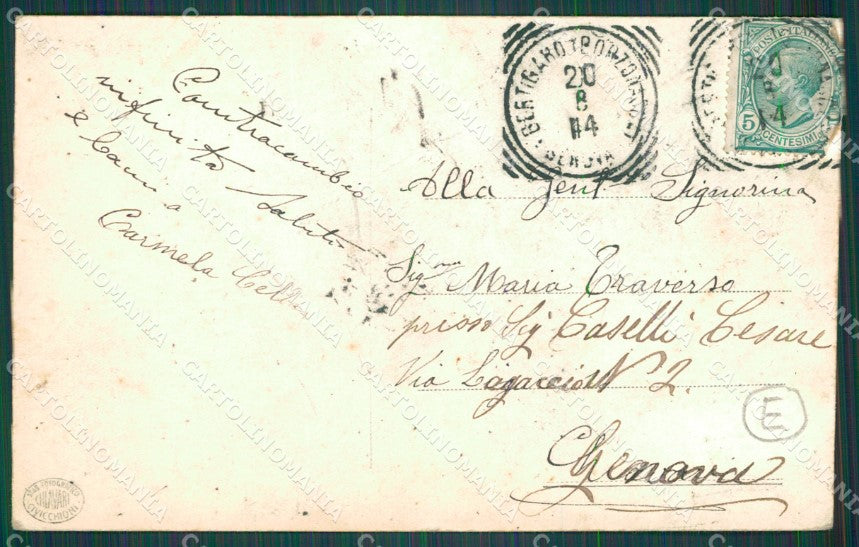 Contracambio
infiniti saluti
e baci a
Carmela
BERTIGARO (BORZONASCA)
20
8
14
GENOVA
POSTE ITALIANE
5
CENTESIMI
Alla Gent Signorina
Sig.na Maria Traverso
presso Sig Caselli Cesare
Via Lagaccio N 2.
Genova
E
CARTOLINOMANIA